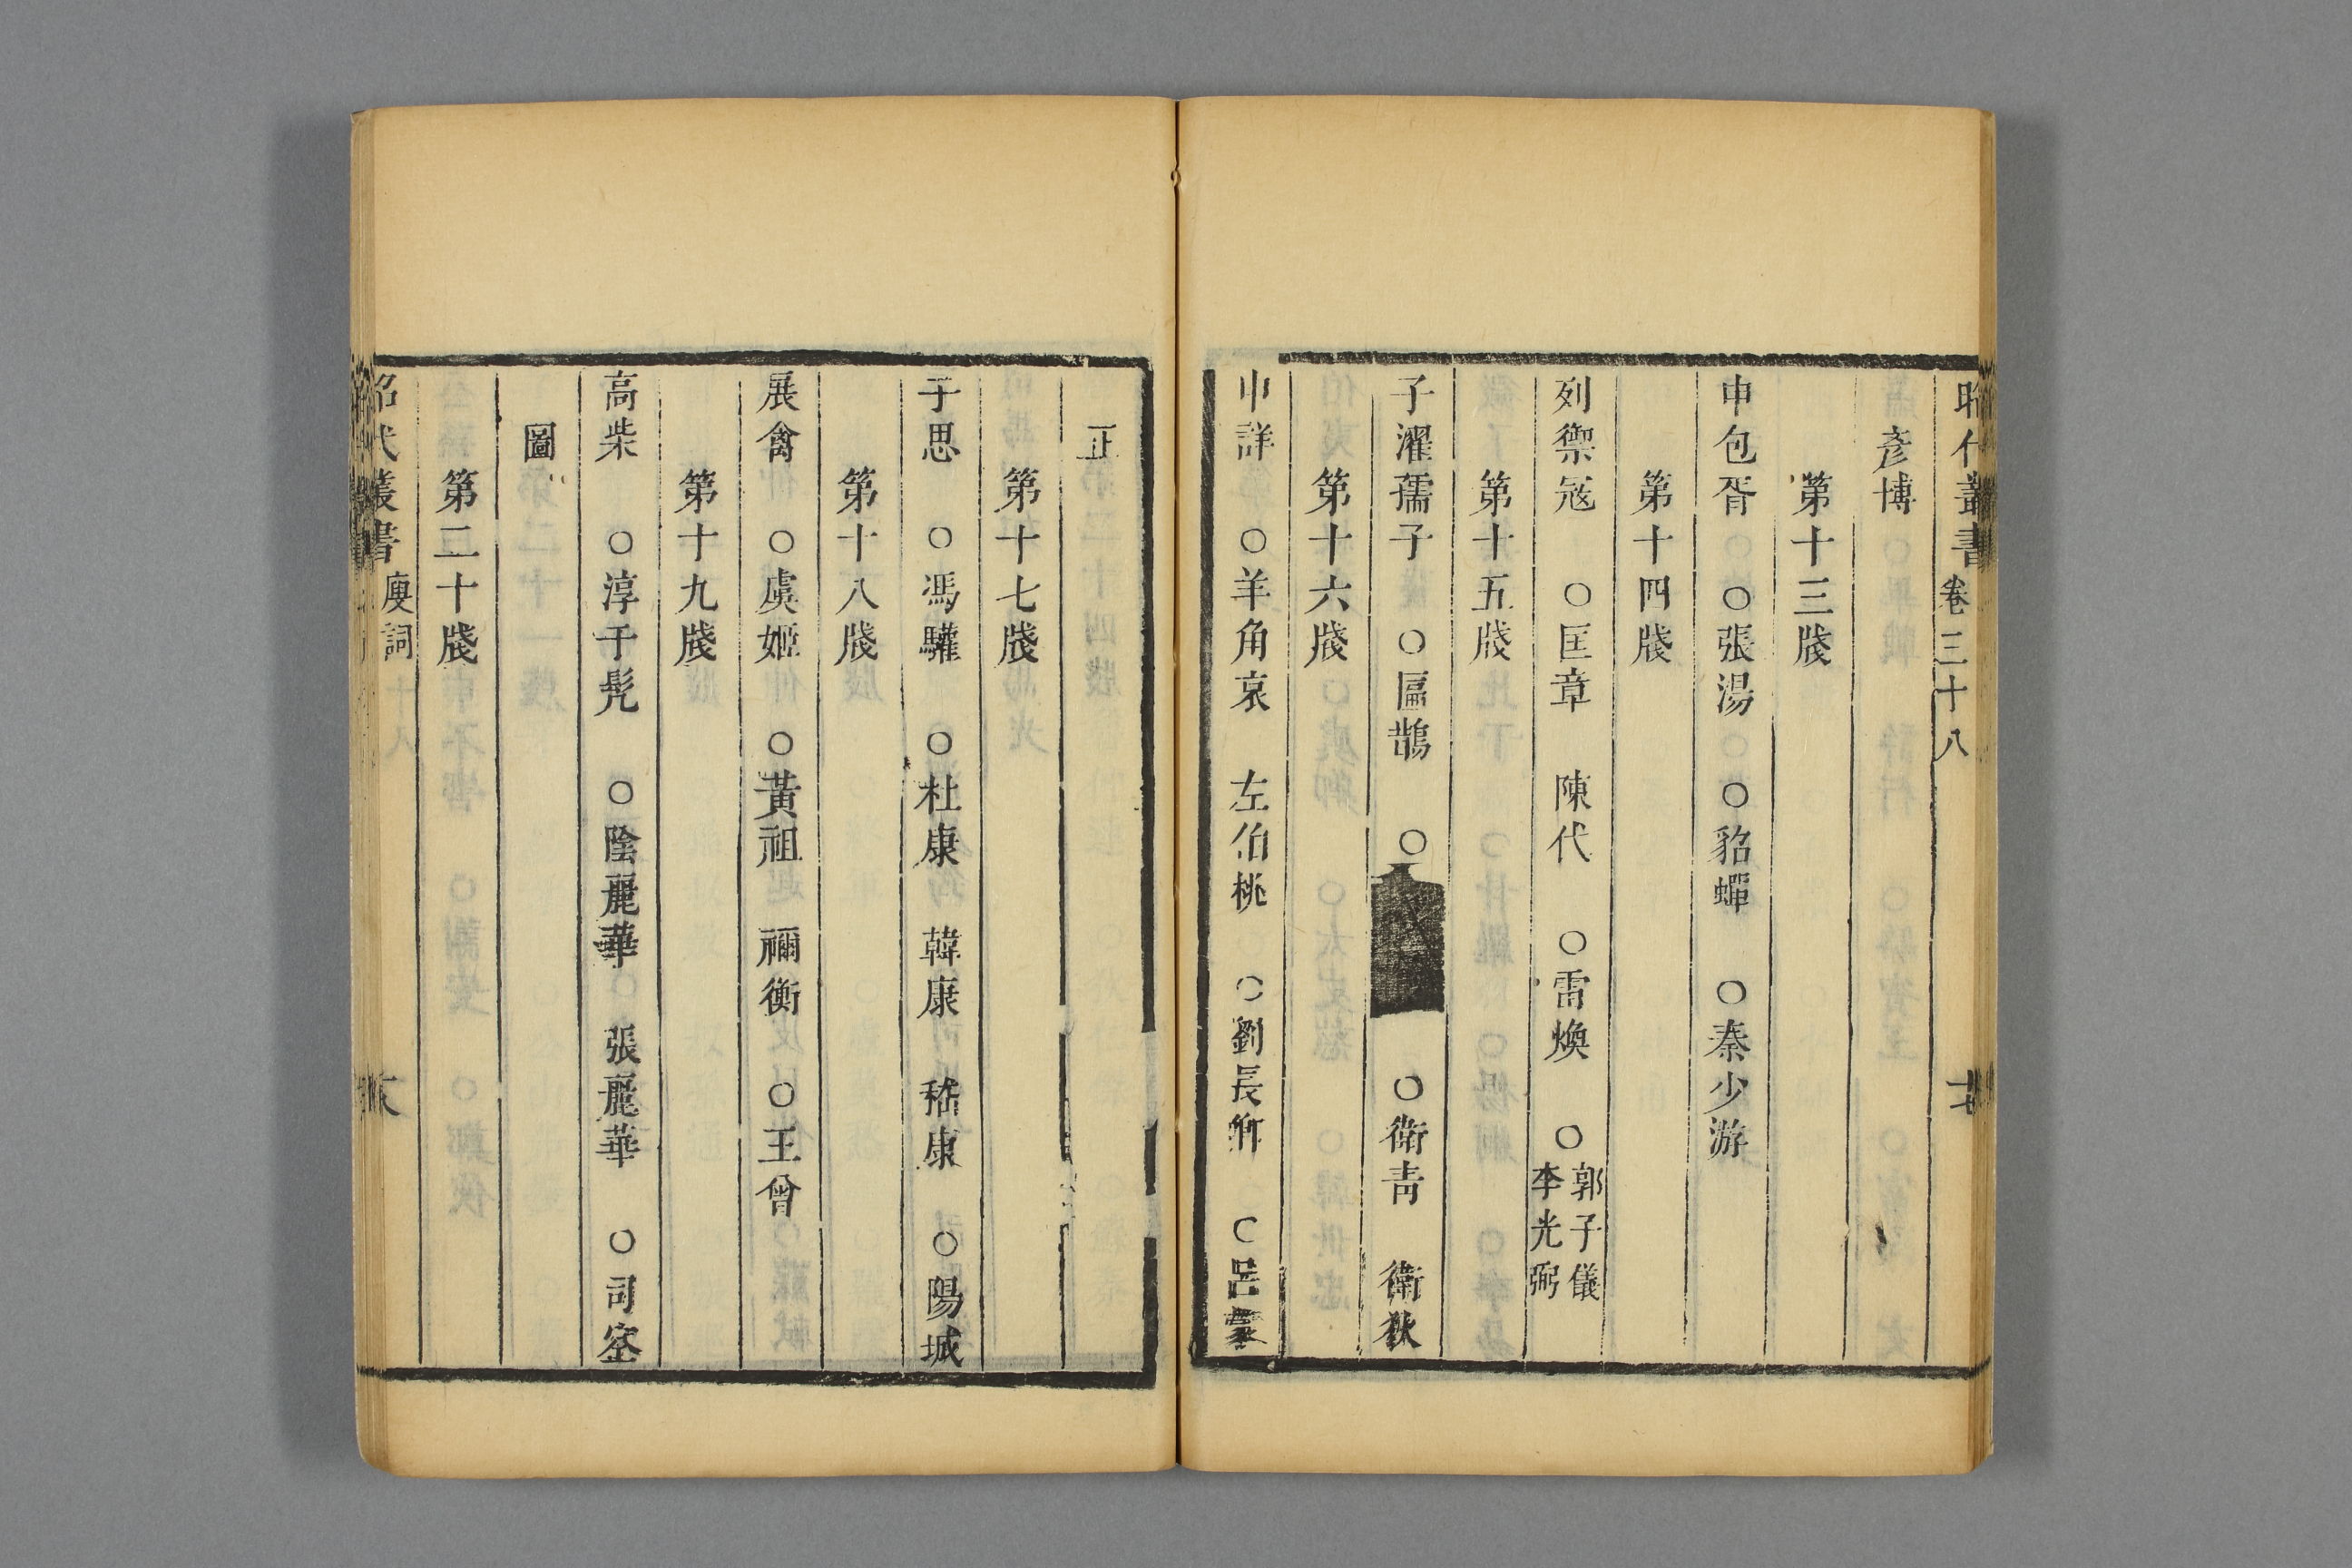 昭代叢書 卷三十八
彥博
第十三牋
申包胥 ○張湯 ○貂蟬 ○秦少游
第十四牋
列禦寇 ○匡章 陳代 ○雷煥 ○郭子儀 李光弼
第十五牋
子濯孺子 ○扁鵲 ○ ○衛青 衛狄
第十六牋
申詳 ○羊角哀 左伯桃 ○劉長卿 ○呂蒙
正
第十七牋
子思 ○馮驩 ○杜康 韓康 嵇康 ○陽城
第十八牋
展禽 ○虞姬 ○黃祖 禰衡 ○王曾
第十九牋
高柴 ○淳于髡 ○陰麗華 張麗華 ○司空
圖
第二十牋
昭代叢書 廋詞